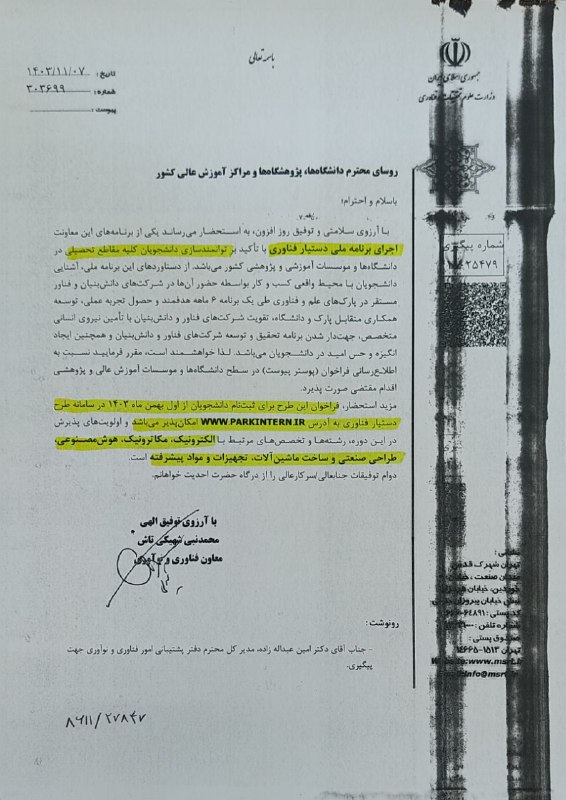 باسمه تعالی
جمهوری اسلامی ایران
وزارت علوم تحقیقات و فناوری
تاریخ: ۱۴۰۳/۱۱/۰۷
شماره: ۳۰۳۶۹۹
پیوست:
شماره پیگیری
۲۵۴۷۹
روسای محترم دانشگاه‌ها، پژوهشگاه‌ها و مراکز آموزش عالی کشور
باسلام و احترام؛
با آرزوی سلامتی و توفیق روز افزون، به استحضار می‌رساند یکی از برنامه‌های این معاونت
اجرای برنامه ملی دستیار فناوری با تأکید بر توانمندسازی دانشجویان کلیه مقاطع تحصیلی در
دانشگاه‌ها و موسسات آموزشی و پژوهشی کشور می‌باشد. از دستاوردهای این برنامه ملی، آشنایی
دانشجویان با محیط واقعی کسب و کار بواسطه حضور آن‌ها در شرکت‌های دانش‌بنیان و فناور
مستقر در پارک‌های علم و فناوری طی یک برنامه ۶ ماهه هدفمند و حصول تجربه عملی، توسعه
همکاری متقابل پارک و دانشگاه، تقویت شرکت‌های فناور و دانش‌بنیان با تأمین نیروی انسانی
متخصص، جهت‌دار شدن برنامه تحقیق و توسعه شرکت‌های فناور و دانش‌بنیان و همچنین ایجاد
انگیزه و حس امید در دانشجویان می‌باشد. لذا خواهشمند است، مقرر فرمایید نسبت به
اطلاع‌رسانی فراخوان (پوستر پیوست) در سطح دانشگاه‌ها و موسسات آموزش عالی و پژوهشی
اقدام مقتضی صورت پذیرد.
مزید استحضار، فراخوان این طرح برای ثبت‌نام دانشجویان از اول بهمن ماه ۱۴۰۳ در سامانه طرح
دستیار فناوری به آدرس WWW.PARKINTERN.IR امکان‌پذیر می‌باشد و اولویت‌های پذیرش
در این دوره، رشته‌ها و تخصص‌های مرتبط با الکترونیک، مکاترونیک، هوش‌مصنوعی،
طراحی صنعتی و ساخت ماشین‌آلات، تجهیزات و مواد پیشرفته است.
دوام توفیقات جنابعالی/سرکارعالی را از درگاه حضرت احدیت خواهانم.
با آرزوی توفیق الهی
محمدنبی شهیکی تاش
معاون فناوری و نوآوری
رونوشت:
- جناب آقای دکتر امین عبداله زاده، مدیر کل محترم دفتر پشتیبانی امور فناوری و نوآوری جهت
پیگیری.
تهران شهرک قدس
میدان صنعت، خیابان
خیابان پیروزان
کد پستی:
شماره تلفن:
صندوق پستی:
تهران ۱۵۱۳-۱۴۶۶۵
Website:www.msrt.
Email:info@msrt.
۸۶۱۱/۲۷۸۴۷